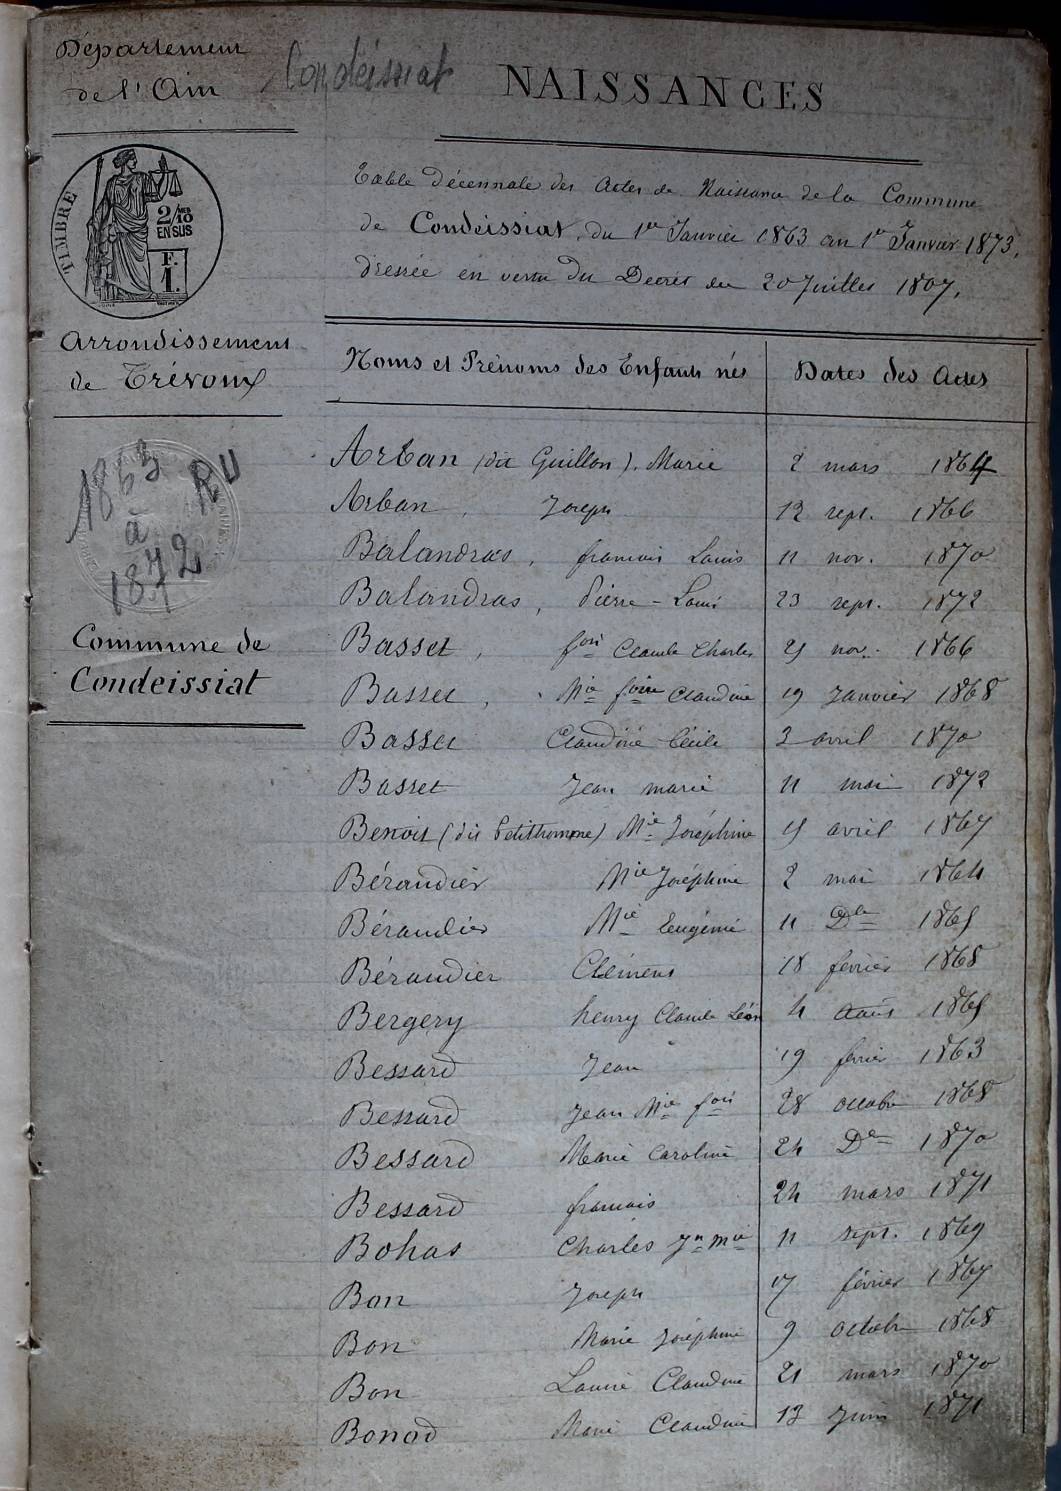 Département
de l'Ain
Condéissiat
NAISSANCES
TIMBRE
2/10
EN SUS
F.
1.
Table décennale des Actes de Naissance de la Commune
de Condeissiat, du 1er Janvier 1863 au 1er Janvier 1873,
dressée en vertu du Decret du 20 Juillet 1807.
Arrondissement
de Trévoux
1863
à
1872
RU
Commune de
Condeissiat
Noms et Prénoms des Enfants nés Dates des Actes
Arban (dit Guillon). Marie 2 mars 1864
Arban, Joseph 12 sept. 1866
Balandras, francois Louis 11 nov. 1870
Balandras, Pierre-Louis 23 sept. 1872
Basset, fois Claude Charles nov. 1866
Basset, Mie foise Claudine 19 Janvier 1868
Basset Claudine Cécile 3 avril 1870
Basset Jean marie 11 mai 1872
Benoit (dit Petithomme) Mie Joséphine avril 1867
Béraudier Mie Joséphine 2 mai 1864
Béraudier Mie Eugénie 11 Dbe 1865
Béraudier Clémens 18 fevrier 1868
Bergery henry Claude Léon 4 Août 1865
Bessard Jean 19 fevrier 1863
Bessard Jean Mie fois 28 octobre 1868
Bessard Marie Caroline 24 De 1870
Bessard francois 24 mars 1871
Bohas Charles Jn Mie 11 sept. 1869
Bon Joseph 17 février 1867
Bon Marie Joséphine 9 octobre 1868
Bon Louise Claudine 21 mars 1870
Bonod Marie Claudine 13 Juin 1871